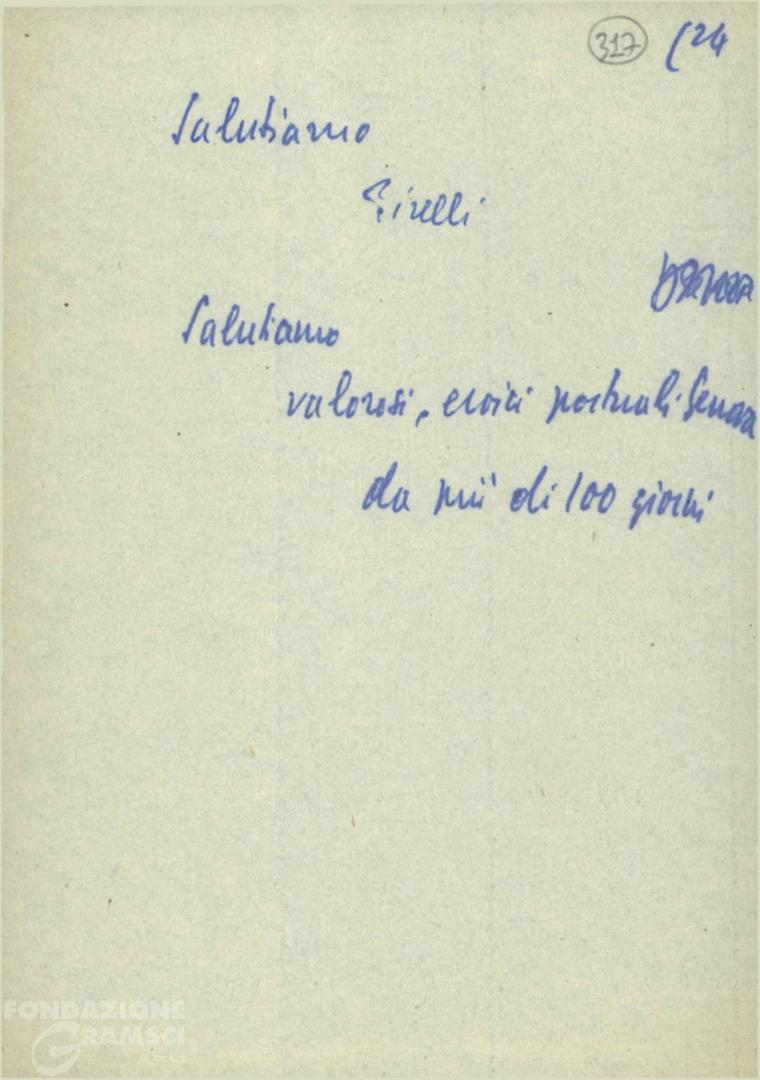 317 (24
Salutiamo
Salutiamo
valorosi, eroici portuali Genova
da più di 100 giorni
FONDAZIONE
GRAMSCI